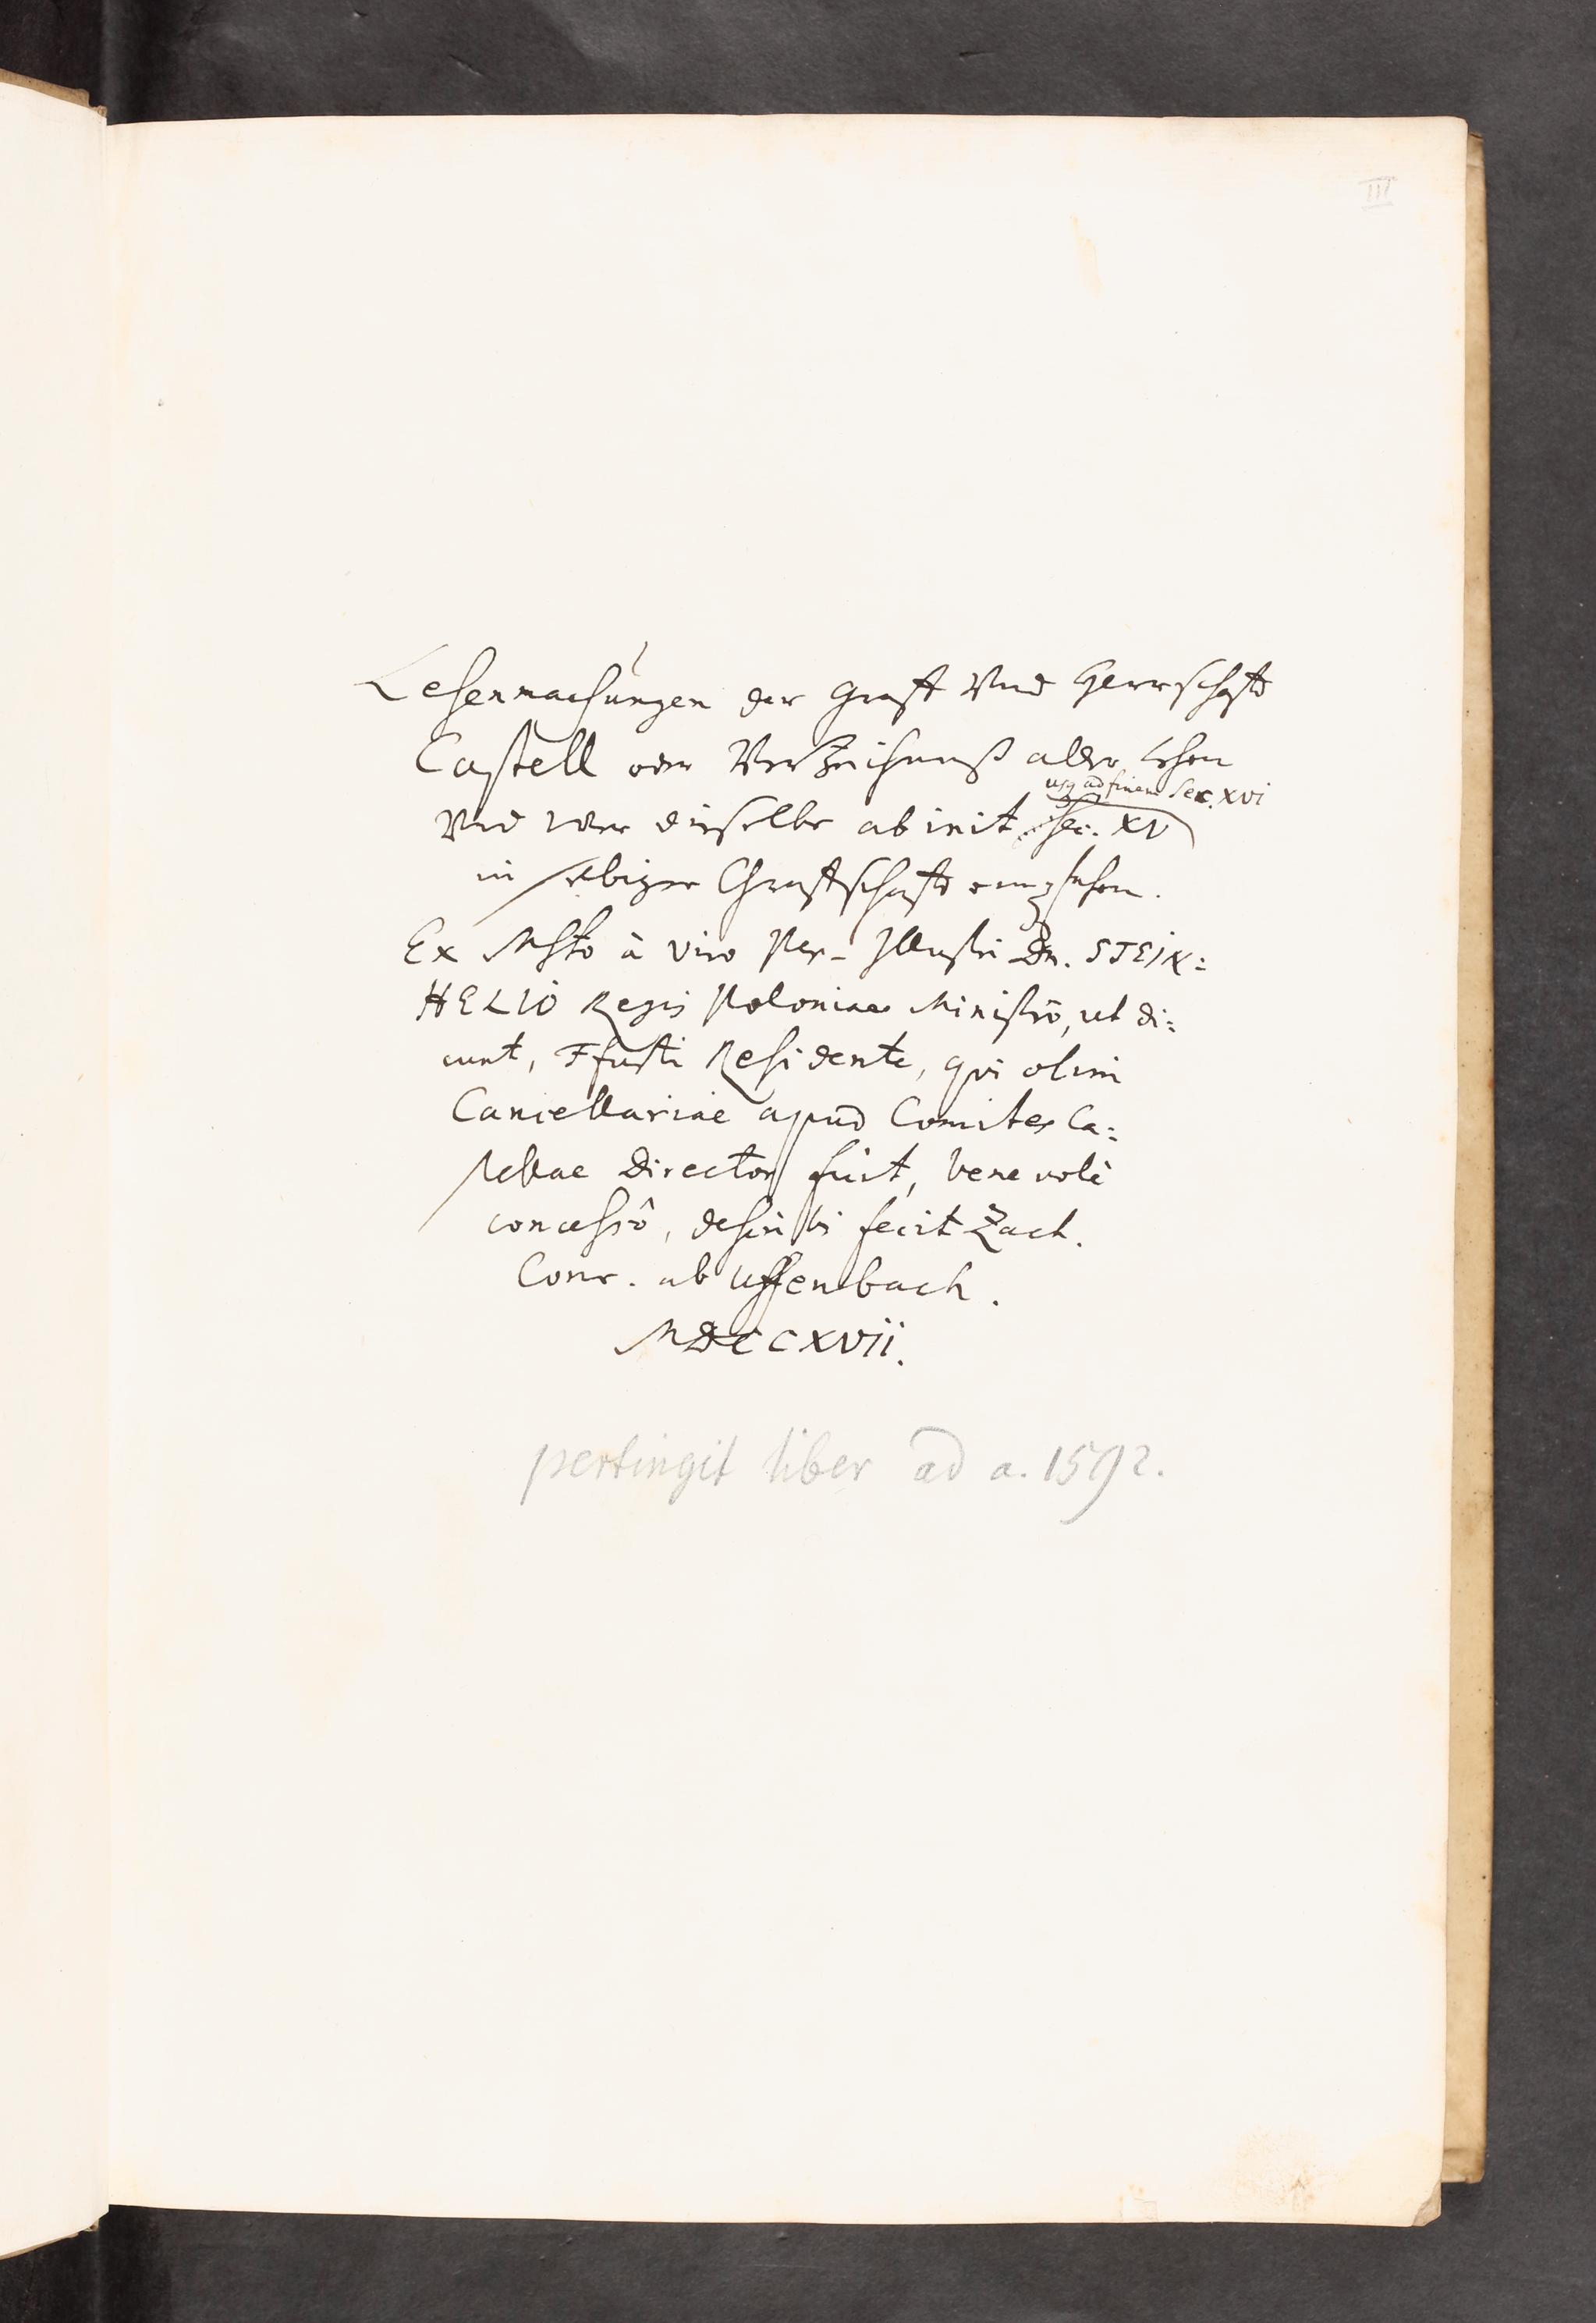 III
Lehenmachungen der Graff Vnd Herrschafft
Castell oder Verzeichnuß aller Lehen
usq ad finem Sec. XVI
Vnd wer dieselbe ab init. Sec. XV
in selbiger Graffschafft empfahen.
Ex MSto à viro Per-Illustri Dn. STEIN:
HELIO Regis Poloniae Ministrô, ut di:
cunt, Ffurti Residente, qvi olim
Cancellariae apud Comites Ca:
stellae Director fuit, benevolè
concessô, describi fecit Zach.
Conr. ab Uffenbach.
MDCCXVII.
pertingit liber ad a. 1592.